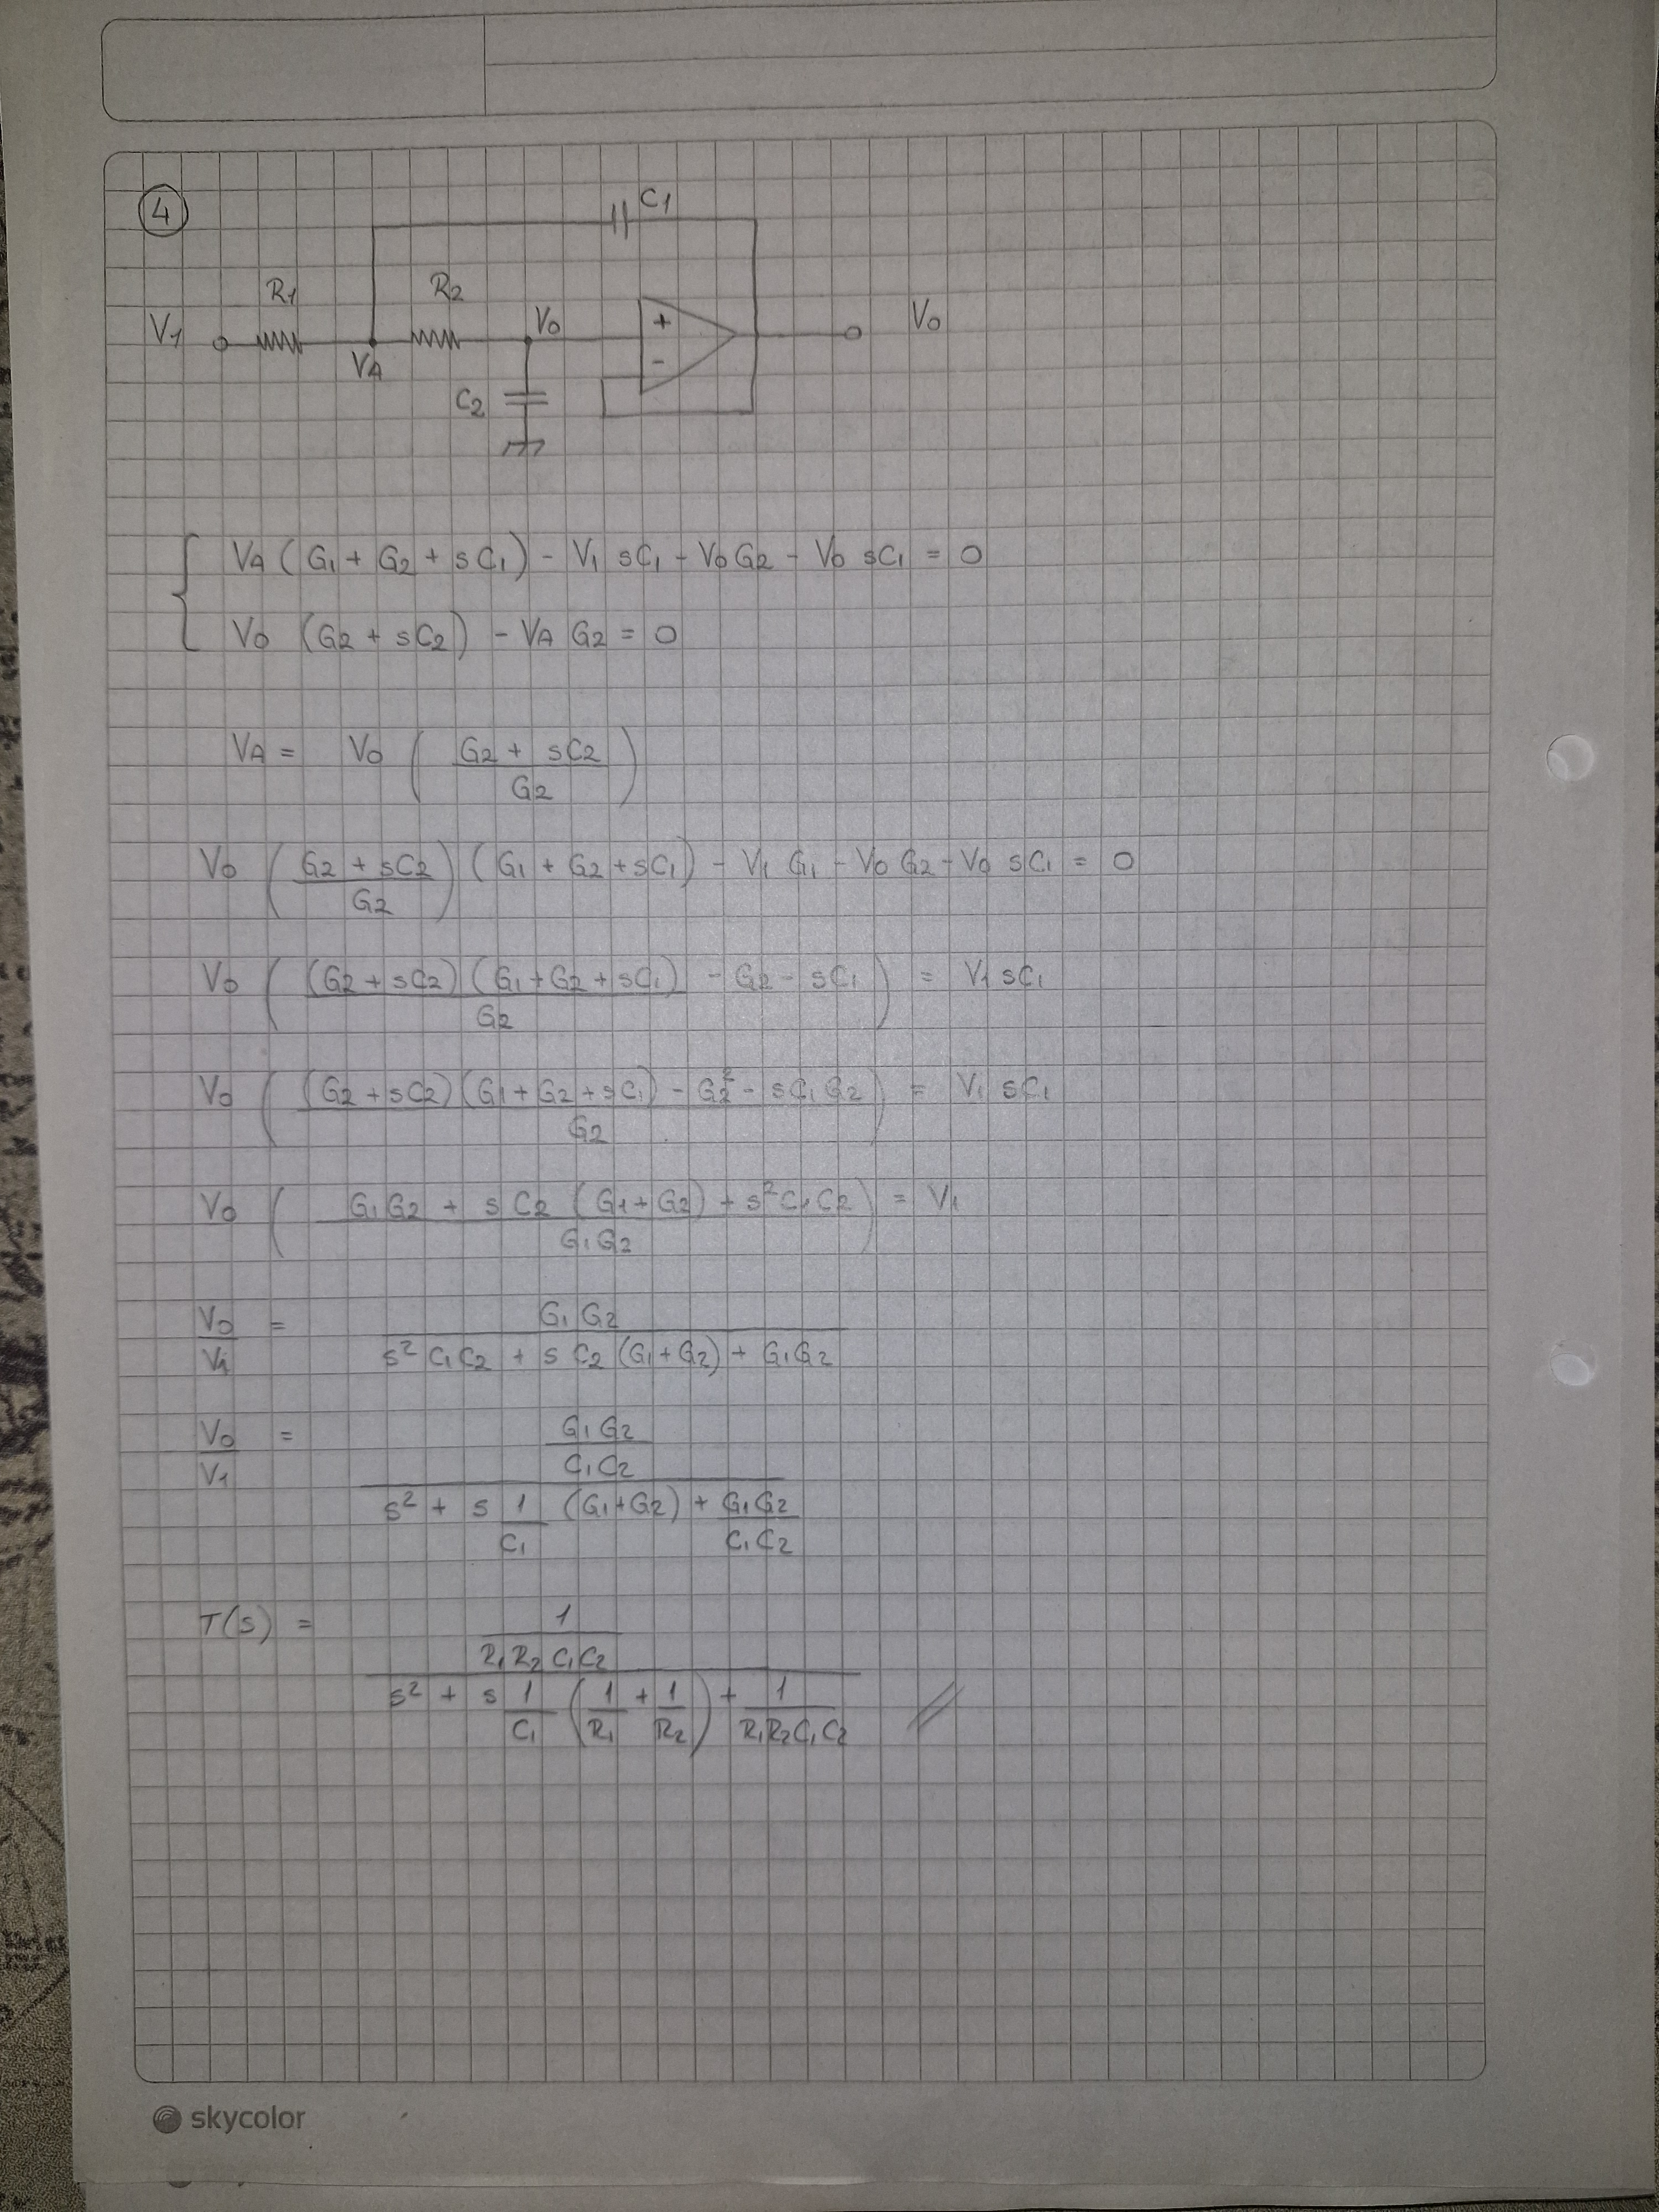 4
C1
R1 R2
V1 VA V0 + - V0
C2
VA (G1 + G2 + sC1) - V1 sC1 - V0 G2 - V0 sC1 = 0
V0 (G2 + sC2) - VA G2 = 0
VA = V0 ( G2 + sC2 / G2 )
V0 ( G2 + sC2 / G2 ) (G1 + G2 + sC1) - V1 G1 - V0 G2 - V0 sC1 = 0
V0 ( (G2 + sC2) (G1 + G2 + sC1) / G2 - G2 - sC1 ) = V1 sC1
V0 ( (G2 + sC2)(G1 + G2 + sC1) - G2² - sC1 G2 / G2 ) = V1 sC1
V0 ( G1G2 + sC2 (G1 + G2) + s²C1C2 / G1G2 ) = V1
V0 / V1 = G1G2 / s² C1C2 + s C2 (G1 + G2) + G1G2
V0 / V1 = G1G2 / C1C2 / s² + s 1 / C1 (G1 + G2) + G1G2 / C1C2
T(s) = 1 / R1R2C1C2 / s² + s 1 / C1 ( 1 / R1 + 1 / R2 ) + 1 / R1R2C1C2 //
skycolor